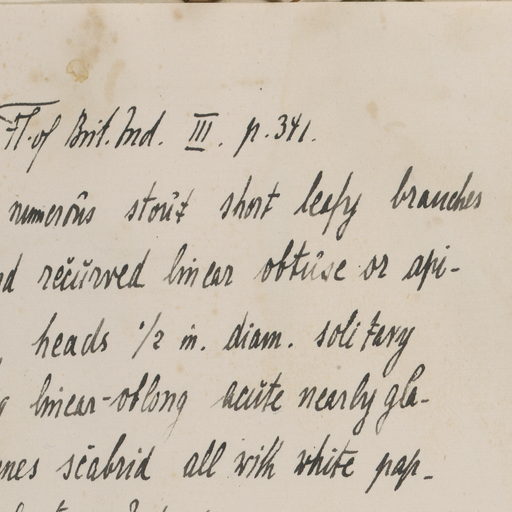 Fl. of Brit. Ind. III. p. 341.
numerous stout short leafy branches
recurved linear obtuse or api-
heads 1/2 in. diam. solitary
linear-oblong acute nearly gla-
scabrid all with white pap-